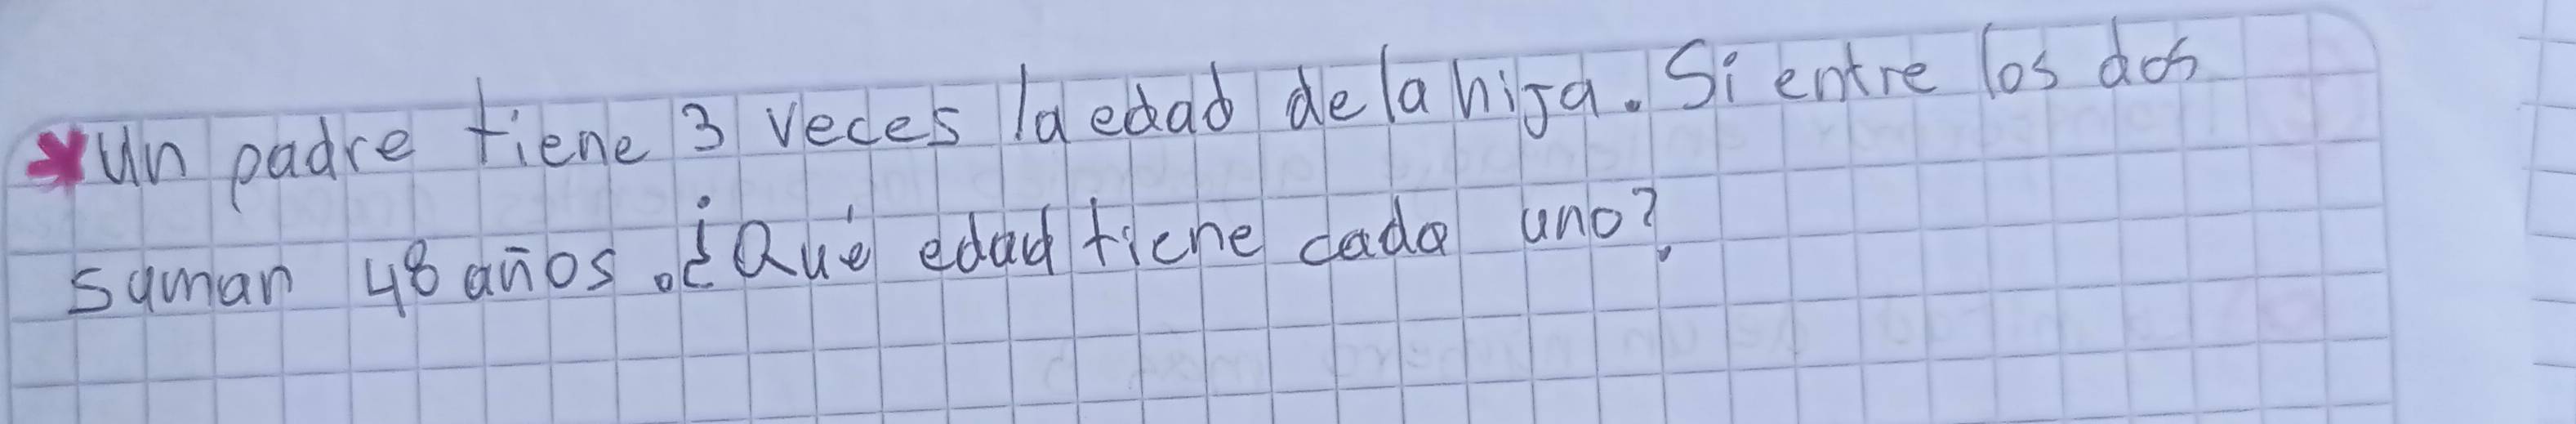 *Un padre tiene 3 veces la edad de la hija. Si entre los dos
suman 48 años. ¿Qué edad tiene cada uno?